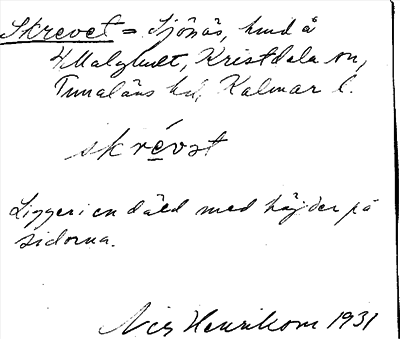 Skrevet = Sjönäs, hmd å
Målghult, Kristdala sn,
Tunaläns hd, Kalmar l.
skrévet
Ligger i en däld med höjder på
sidorna.
Nils Henrikson 1931